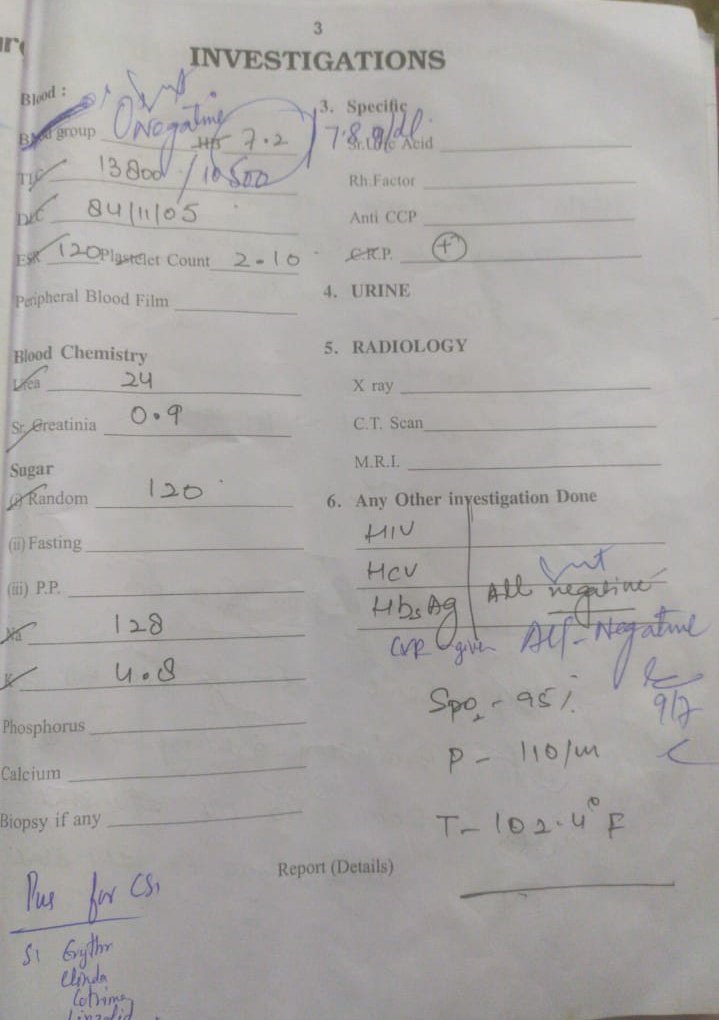 3
INVESTIGATIONS
Blood :
Blood group O Negative Hb 7.2 / 7.8 g/dl
TLC 13800 / 10500
DLC 84/11/05
ESR 120 Plastelet Count 2.10
Peripheral Blood Film
Blood Chemistry
Urea 24
Sr. Creatinia 0.9
Sugar
(i) Random 120
(ii) Fasting
(iii) P.P.
Na 128
K 4.8
Phosphorus
Calcium
Biopsy if any
Pus for CS,
S1 Erythr
Clinda
Cotrimo
Linzolid
3. Specific
Sr.Uric Acid
Rh.Factor
Anti CCP
C.R.P. +
4. URINE
5. RADIOLOGY
X ray
C.T. Scan
M.R.I.
6. Any Other investigation Done
HIV
HCV
HbsAg All negative
given All - Negative
9/7
Spo2 - 95%
P - 110/m
T - 102.4°F
Report (Details)